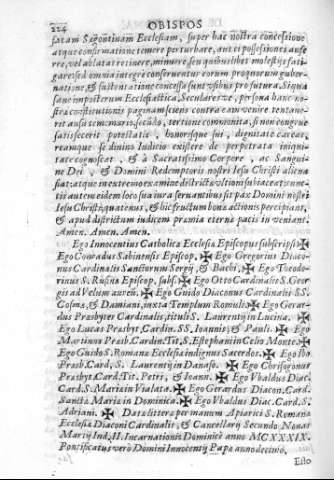 224 OBISPOS
fatam Segontinam Ecclesiam, super hac nostra concessione
atque confirmatione temere perturbare, aut ei possessiones aufe
rre, vel ablatas retinere, minuere, seu quibuslibet molestijs fati-
gare sed omnia integre conseruentur eorum pro quorum guber-
natione, & sustentatione concessa sunt vsibus pro futura. Siqua
sane in posterum Ecclesiastica, Secularis ve, persona hanc no-
stræ constitutionis paginam sciens contra eam venire tentaue-
rit ausu temerario, secũdo, tertio ve commonita, si non congrue
satisfecerit potestatis, honorisque sui, dignitate careat,
reamque se diuino Iudicio existere de perpetrata iniqui
tate cognoscat, & à Sacratissimo Corpore, ac Sangui-
ne Dei, & Domini Redemptoris nostri Iesu Christi aliena
fiat, atque in extremo examine districtæ vltioni subiaceat cunc-
tis autem eidem loco sua iura seruantibus sit pax Domini nostri
Iesu Christi, quatenus, & hic fructum bonæ actionis percipiant,
& apud districtum iudicem præmia eternæ pacis inveniant.
Amen. Amen. Amen.
Ego Innocentius Catholicæ Ecclesiæ Episcopus subscripsi ✠
Ego Conradus Sabinensis Episcop. ✠ Ego Gregorius Diaco-
nus Cardinalis Sanctorum Sergij, & Bachi, ✠ Ego Theodo-
rinus S. Rufinæ Episcop, subs. ✠ Ego Otto Cardinalis S. Geor
gij ad Velum aureũ. ✠ Ego Guido Diaconus Cardinalis SS.
Cosmæ, & Damiani, iuxta Templum Romuli ✠ Ego Gerar-
dus Presbyter Cardinalis, tituli S. Laurentij in Lucina. ✠
Ego Lucas Presbyt. Cardin. SS. Ioannis, & Pauli. ✠ Ego
Martinus Presb. Cardin. Tit. S. Estephani in Celio Monte. ✠
Ego Guido S. Romanæ Ecclesiæ indignus Sacerdos. ✠ Ego Ibo
Presb. Card, S. Laurentij in Damaso. ✠ Ego Chrisogonus
Presbyt. Card. Tit. Petri, & Ioann. ✠ Ego Vbaldus Diac.
Card. S. Mariæ in Vialata. ✠ Ego Gerardus Diacon. Card.
Sanctæ Mariæ in Dominica. ✠ Ego Vbaldus Diac. Card. S.
Adriani. ✠ Data litteræ per manum Apiarici S. Romanæ
Ecclesiæ Diaconi Cardinalis, & Cancellarij Secundo Nonas
Martij Ind. II. Incarnationis Dominicæ anno MCXXXIX.
Pontificatus verò Domini Innocentij Papæ anno decimo.
Esto